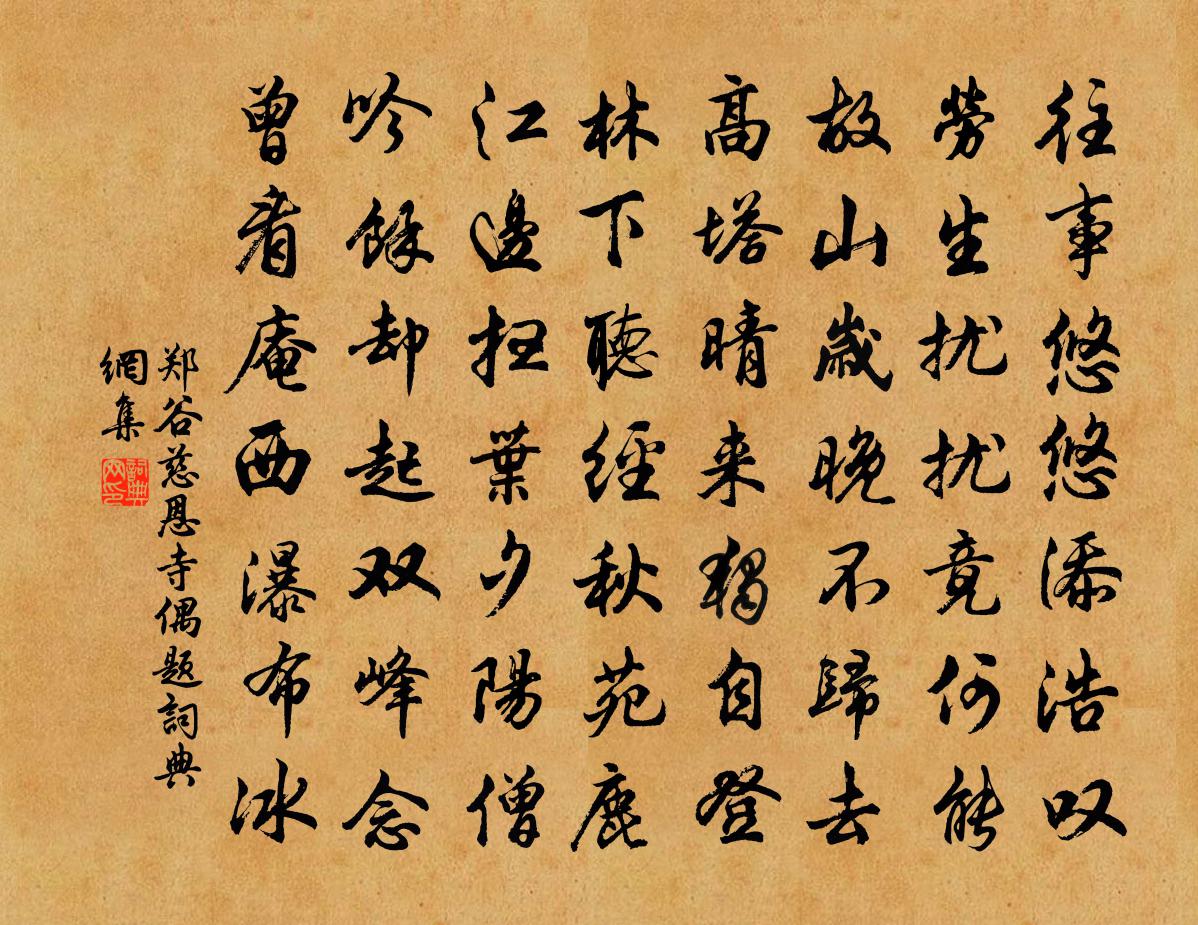 往事悠悠添浩叹
劳生扰扰竟何能
故山歳晚不歸去
高塔晴来獨自登
林下聽經秋苑鹿
江邊扫葉夕陽僧
吟餘却起双峰念
曾看庵西瀑布冰
郑谷慈恩寺偶题詞典
網集
詞典网印